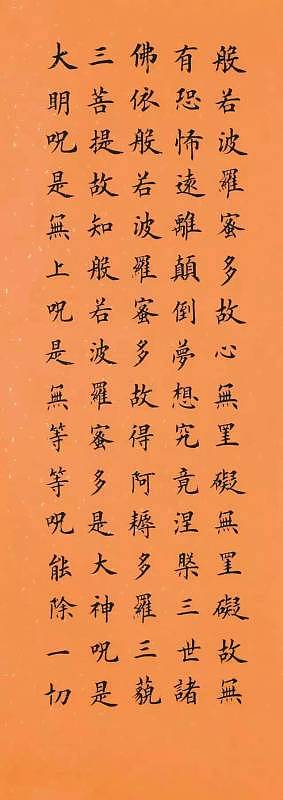 般若波羅蜜多故心無罣礙無罣礙故無
有恐怖遠離顛倒夢想究竟涅槃三世諸
佛依般若波羅蜜多故得阿耨多羅三藐
三菩提故知般若波羅蜜多是大神呪是
大明呪是無上呪是無等等呪能除一切